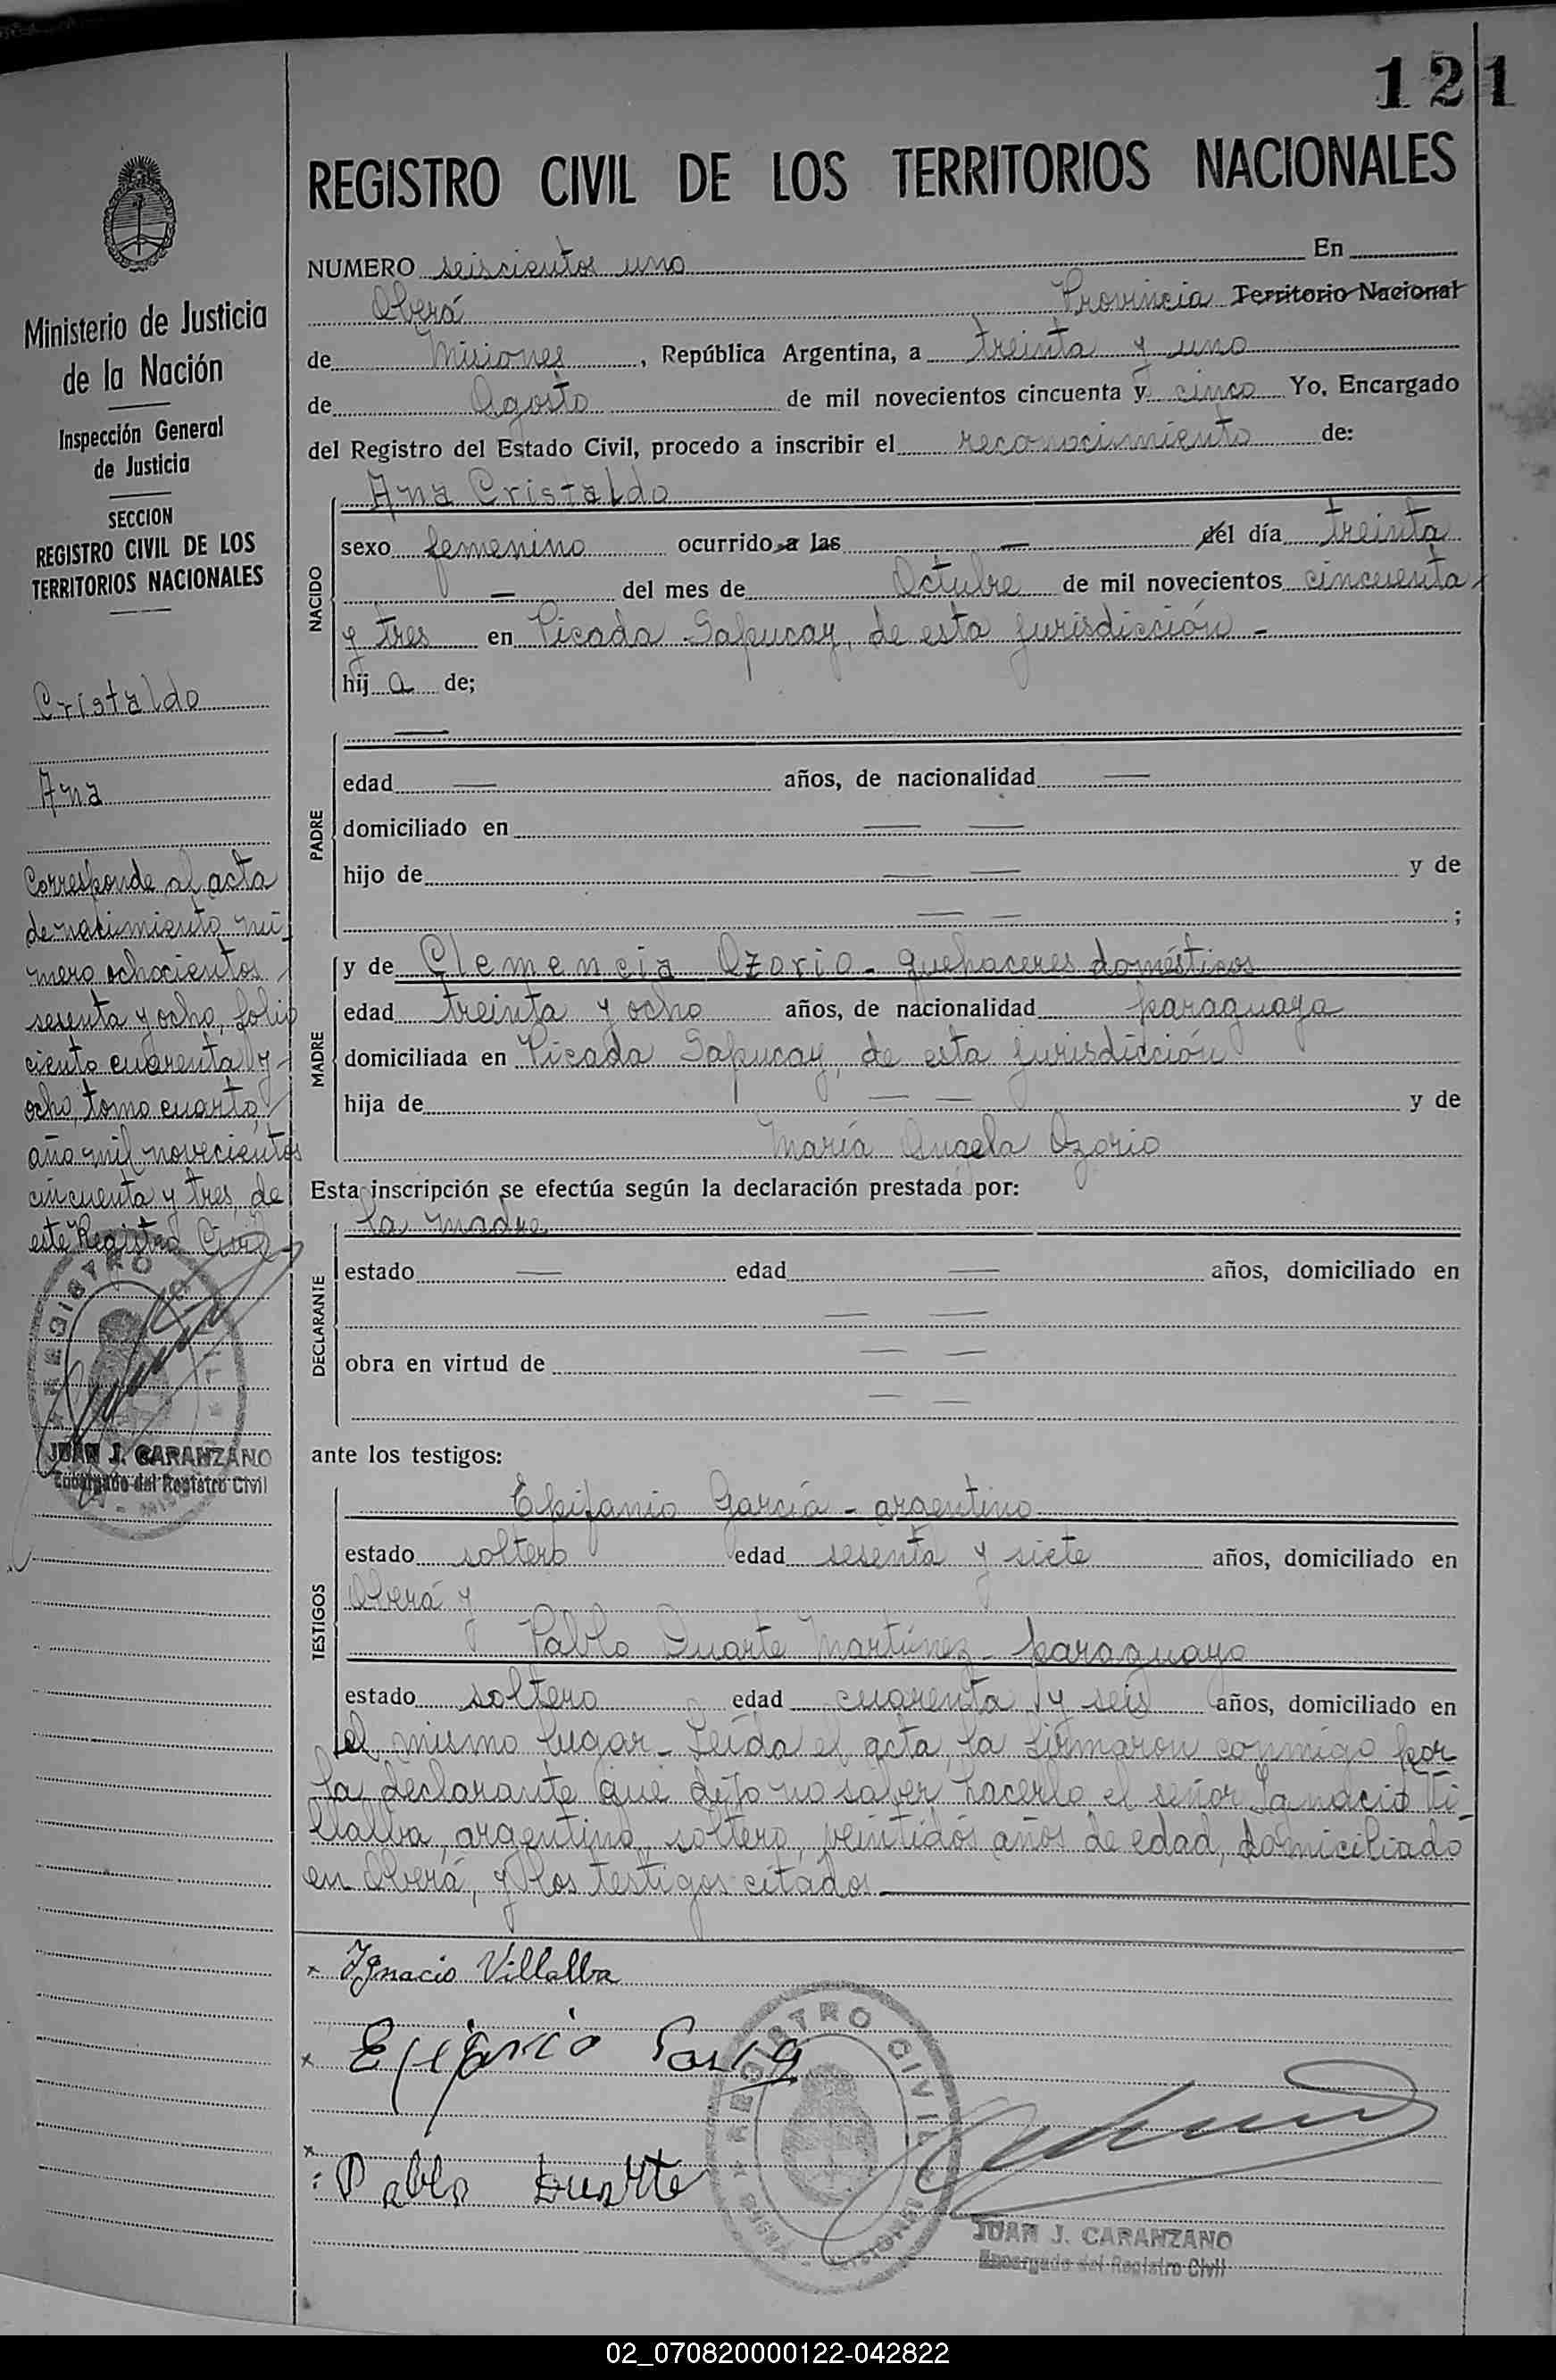 121
REGISTRO CIVIL DE LOS TERRITORIOS NACIONALES
NUMERO seiscientos uno En
Oberá Provincia Territorio Nacional
de Misiones, República Argentina, a treinta y uno
de Agosto de mil novecientos cincuenta y cinco Yo, Encargado
del Registro del Estado Civil, procedo a inscribir el reconocimiento de:
NACIDO
Ana Cristaldo
sexo femenino ocurrido a las — del día treinta
— del mes de Octubre de mil novecientos cincuenta
y tres en Picada Sapucay, de esta jurisdicción -
hij a de;
PADRE
—
edad — años, de nacionalidad —
domiciliado en — —
hijo de — — y de
— — ;
MADRE
y de Clemencia Ozorio - quehaceres domésticos
edad treinta y ocho años, de nacionalidad paraguaya
domiciliada en Picada Sapucay, de esta jurisdicción
hija de — — y de
María Angela Ozorio
Esta inscripción se efectúa según la declaración prestada por:
DECLARANTE
la madre
estado — edad — años, domiciliado en
— —
obra en virtud de — —
— —
ante los testigos:
TESTIGOS
Epifanio García - argentino
estado soltero edad sesenta y siete años, domiciliado en
Oberá y
Pablo Duarte Martínez - paraguayo
estado soltero edad cuarenta y seis años, domiciliado en
el mismo lugar - Leída el acta, la firmaron conmigo por
la declarante que dijo no saber hacerlo el señor Ignacio Vi-
llalba, argentino, soltero, veintidós años de edad, domiciliado
en Oberá, y los testigos citados
x Ignacio Villalba
x Epifanio Garcia
x Pablo Duarte
REGISTRO CIVIL
OBERA - MISIONES
JUAN J. CARANZANO
Encargado del Registro Civil
Ministerio de Justicia
de la Nación
Inspección General
de Justicia
SECCION
REGISTRO CIVIL DE LOS
TERRITORIOS NACIONALES
Cristaldo
Ana
Corresponde al acta
de nacimiento nú-
mero ochocientos
sesenta y ocho, folio
ciento cuarenta y
ocho, tomo cuarto,
año mil novecientos
cincuenta y tres, de
este Registro Civil
REGISTRO
JUAN J. CARANZANO
Encargado del Registro Civil
02_070820000122-042822